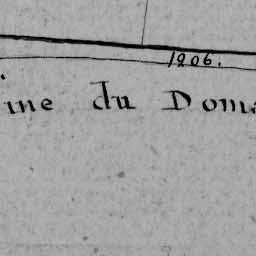 1206.
ine du Doma